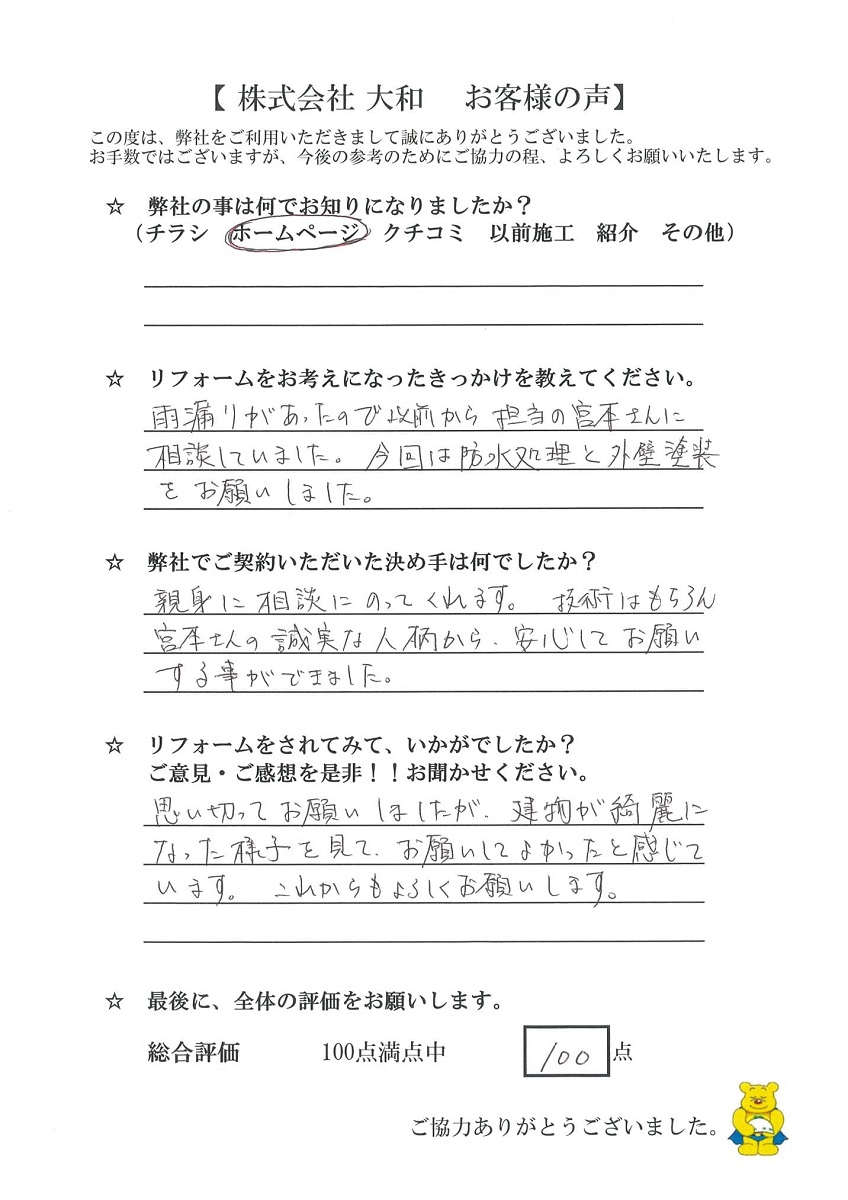 【 株式会社 大和　お客様の声】
この度は、弊社をご利用いただきまして誠にありがとうございました。
お手数ではございますが、今後の参考のためにご協力の程、よろしくお願いいたします。
☆　弊社の事は何でお知りになりましたか？
（チラシ　ホームページ　クチコミ　以前施工　紹介　その他）
☆　リフォームをお考えになったきっかけを教えてください。
雨漏りがあったので以前から 担当の宮本さんに
相談していました。今回は防水処理と外壁塗装
をお願いしました。
☆　弊社でご契約いただいた決め手は何でしたか？
親身に相談にのってくれます。技術はもちろん
宮本さんの誠実な人柄から、安心してお願い
する事ができました。
☆　リフォームをされてみて、いかがでしたか？
ご意見・ご感想を是非！！お聞かせください。
思い切ってお願いしましたが、建物が綺麗に
なった様子を見て、お願いしてよかったと感じて
います。これからもよろしくお願いします。
☆　最後に、全体の評価をお願いします。
総合評価　100点満点中　100 点
ご協力ありがとうございました。